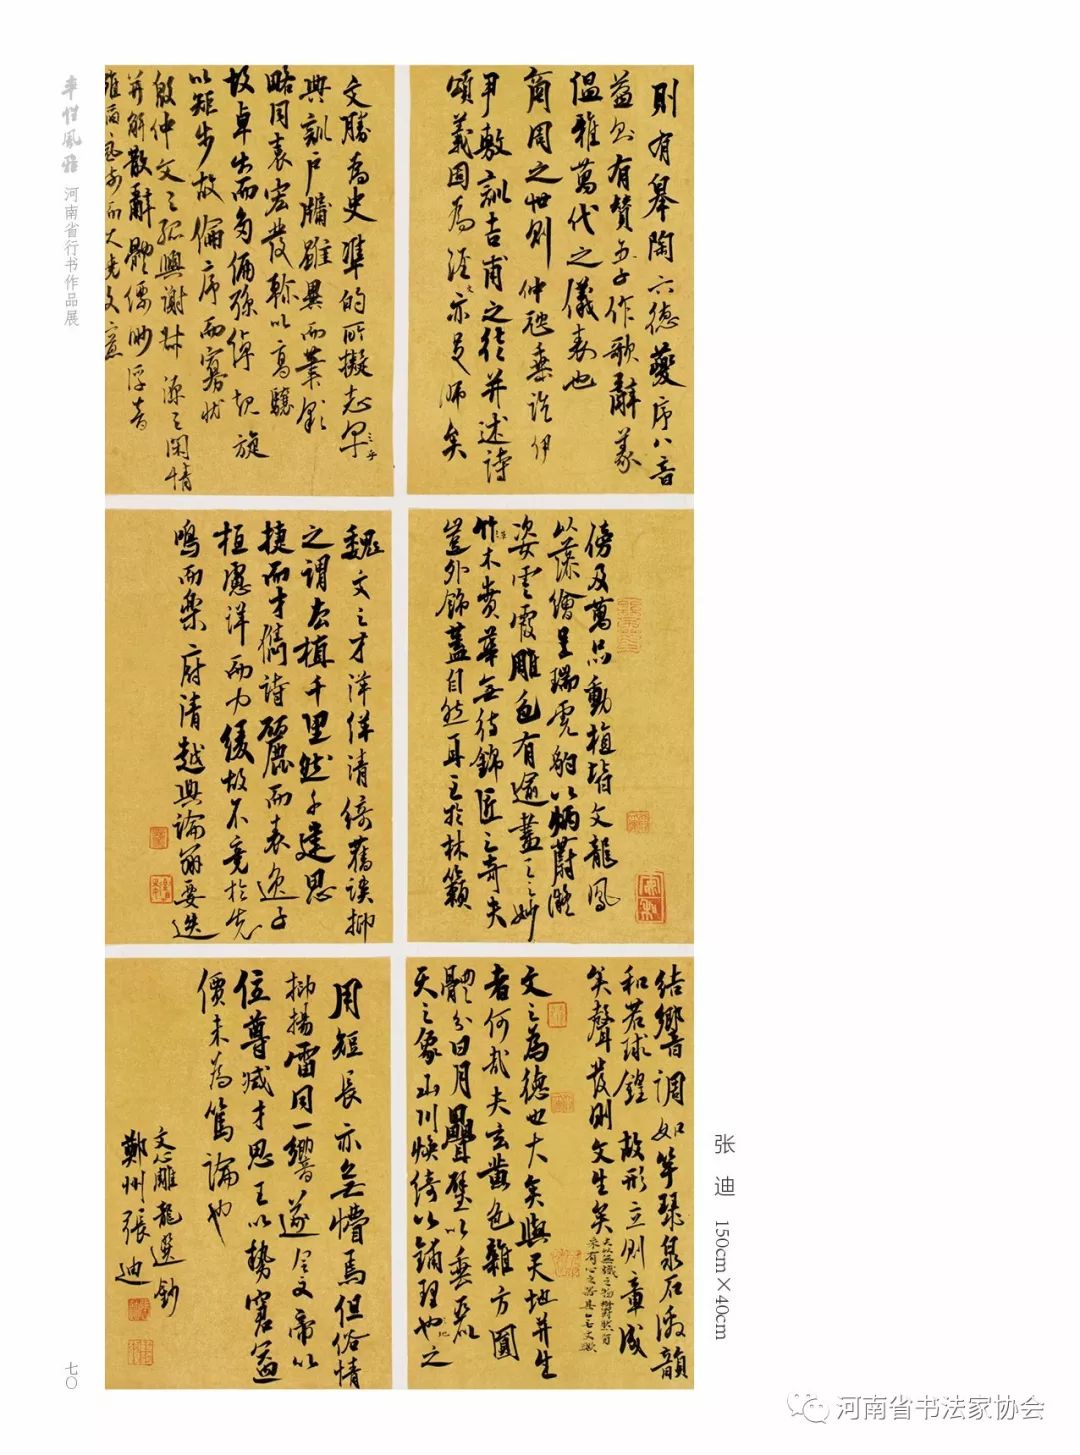 率性風雅 河南省行书作品展
則有皋陶六德夔序八音
益則有贊五子作歌辭義
温雅萬代之儀表也
商周之世則仲虺垂誥伊
尹敷訓吉甫之徒并述詩
頌義固為經文亦足師矣
文勝為史準的所擬志乎
典訓戶牖雖異而筆彩
略同袁宏發軫以高驤
故卓出而多偏孫綽規旋
以矩步故倫序而寡狀
殷仲文之孤興謝叔源之閑情
并解散辭體縹緲浮音
雖滔滔風流而大澆文意
傍及萬品動植皆文龍鳳
以藻繪呈瑞虎豹以炳蔚凝
姿雲霞雕色有逾畫工之妙
草木賁華無待錦匠之奇夫
豈外飾蓋自然耳至於林籟
魏文之才洋洋清綺舊談抑
之謂去植千里然子建思
捷而才儁詩麗而表逸子
桓慮詳而力緩故不競於先
鳴而樂府清越典論辯要迭
結響調如竽瑟泉石激韻
和若球鍠故形立則章成
矣聲發則文生矣
夫以無識之物鬱然有
彩有心之器其無文歟
文之為德也大矣與天地并生
者何哉夫玄黃色雜方圓
體分日月疊璧以垂麗
天之象山川煥綺以鋪理地之
用短長亦無懵焉但俗情
抑揚雷同一響遂令文帝以
位尊減才思王以勢窘益
價未為篤論也
文心雕龍選鈔
鄭州張迪
张迪 150cm×40cm
七〇
河南省书法家协会